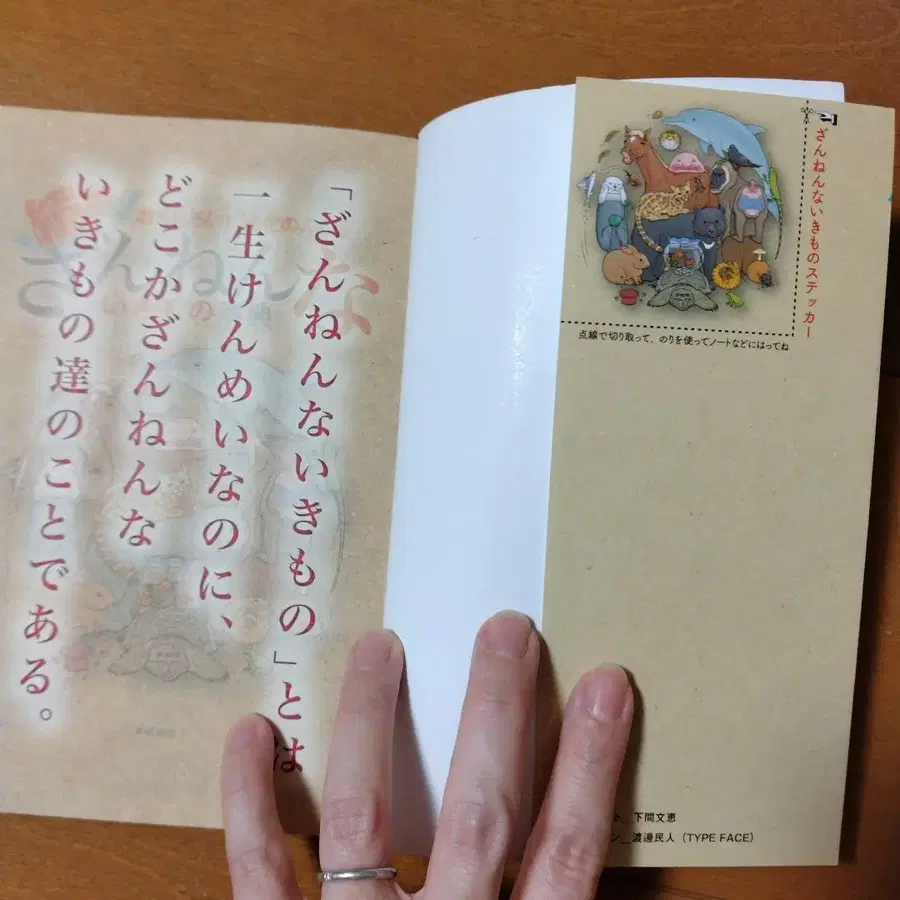 「ざんねんないきもの」とは
一生けんめいなのに、
どこかざんねんな
いきもの達のことである。
ざんねんないきものステッカー
点線で切り取って、のりを使ってノートなどにはってね
ト＿下間文恵
ン＿渡邊民人（TYPE FACE）